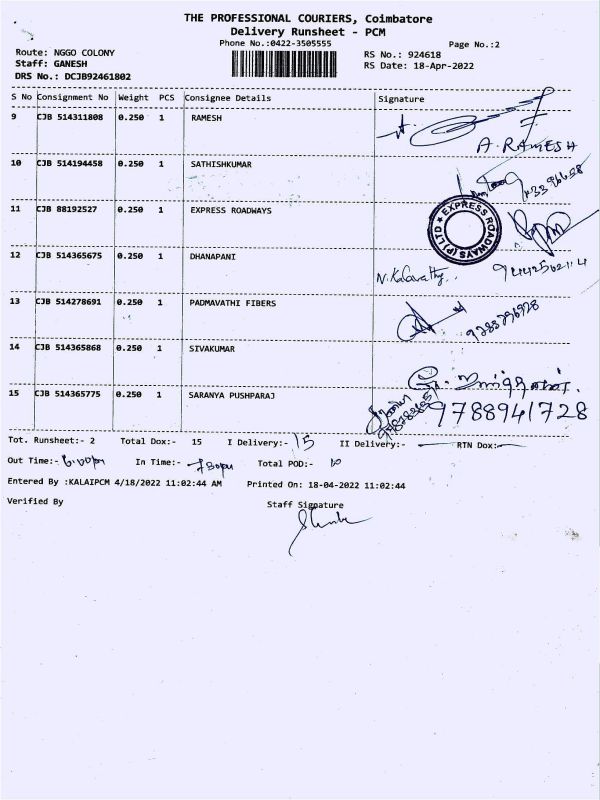 THE PROFESSIONAL COURIERS, Coimbatore
Delivery Runsheet - PCM
Phone No.:0422-3505555
Page No.:2
Route: NGGO COLONY
RS No.: 924618
Staff: GANESH
RS Date: 18-Apr-2022
DRS No.: DCJB92461802
S No Consignment No Weight PCS Consignee Details Signature
9 CJB 514311808 0.250 1 RAMESH
A. RAMESH
10 CJB 514194458 0.250 1 SATHISHKUMAR
11 CJB 88192527 0.250 1 EXPRESS ROADWAYS
EXPRESS ROADWAYS (P) LTD
12 CJB 514365675 0.250 1 DHANAPANI
N. Kalavathy.
13 CJB 514278691 0.250 1 PADMAVATHI FIBERS
14 CJB 514365868 0.250 1 SIVAKUMAR
15 CJB 514365775 0.250 1 SARANYA PUSHPARAJ
9788941728
Tot. Runsheet:- 2 Total Dox:- 15 I Delivery:- 15 II Delivery:- RTN Dox:-
Out Time:- 6.00pm In Time:- 7.30pm Total POD:- 10
Entered By :KALAIPCM 4/18/2022 11:02:44 AM Printed On: 18-04-2022 11:02:44
Verified By Staff Signature